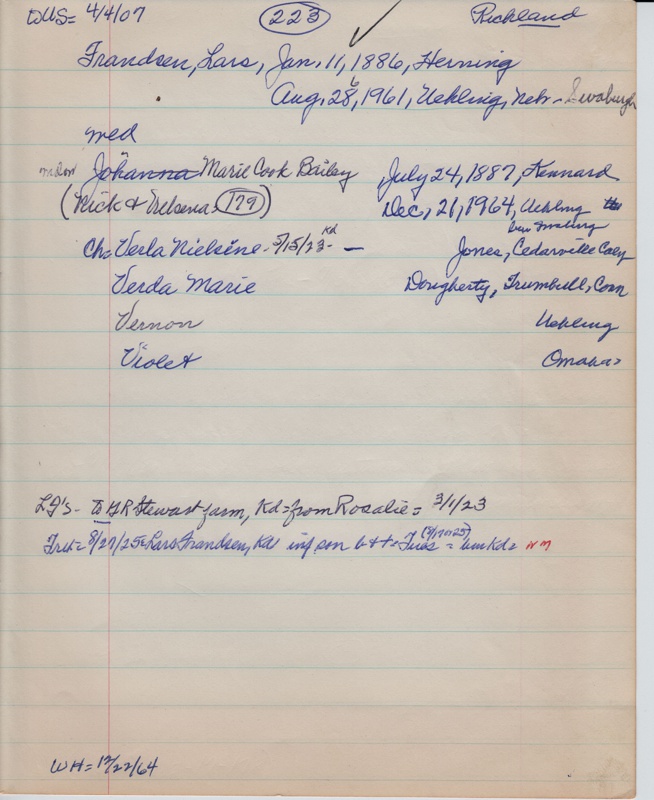 DUS= 4/4/07 223 Richland
Frandsen, Lars, Jan. 11, 1886, Herning
Aug. 28, 1961, Uehling, Nebr -
6
med
Johanna Marie Cook Bailey July 24, 1887, Kennard
(Nick & 179) Dec, 21, 1964, Uehling
Kd
Ch= Verla Nielsine - 5/15/23 - — Jones, Cedarville Caly
Verda Marie Dougherty, Trumbull, Conn
Vernon Uehling
Violet Omaha=
LF's - to GR Stewart farm, Kd=from Rosalie = 3/1/23
(8/17/25)
8/27/25= Lars Frandsen, Kd inf son b & d = Tues = bur Kd=
WH= 12/22/64